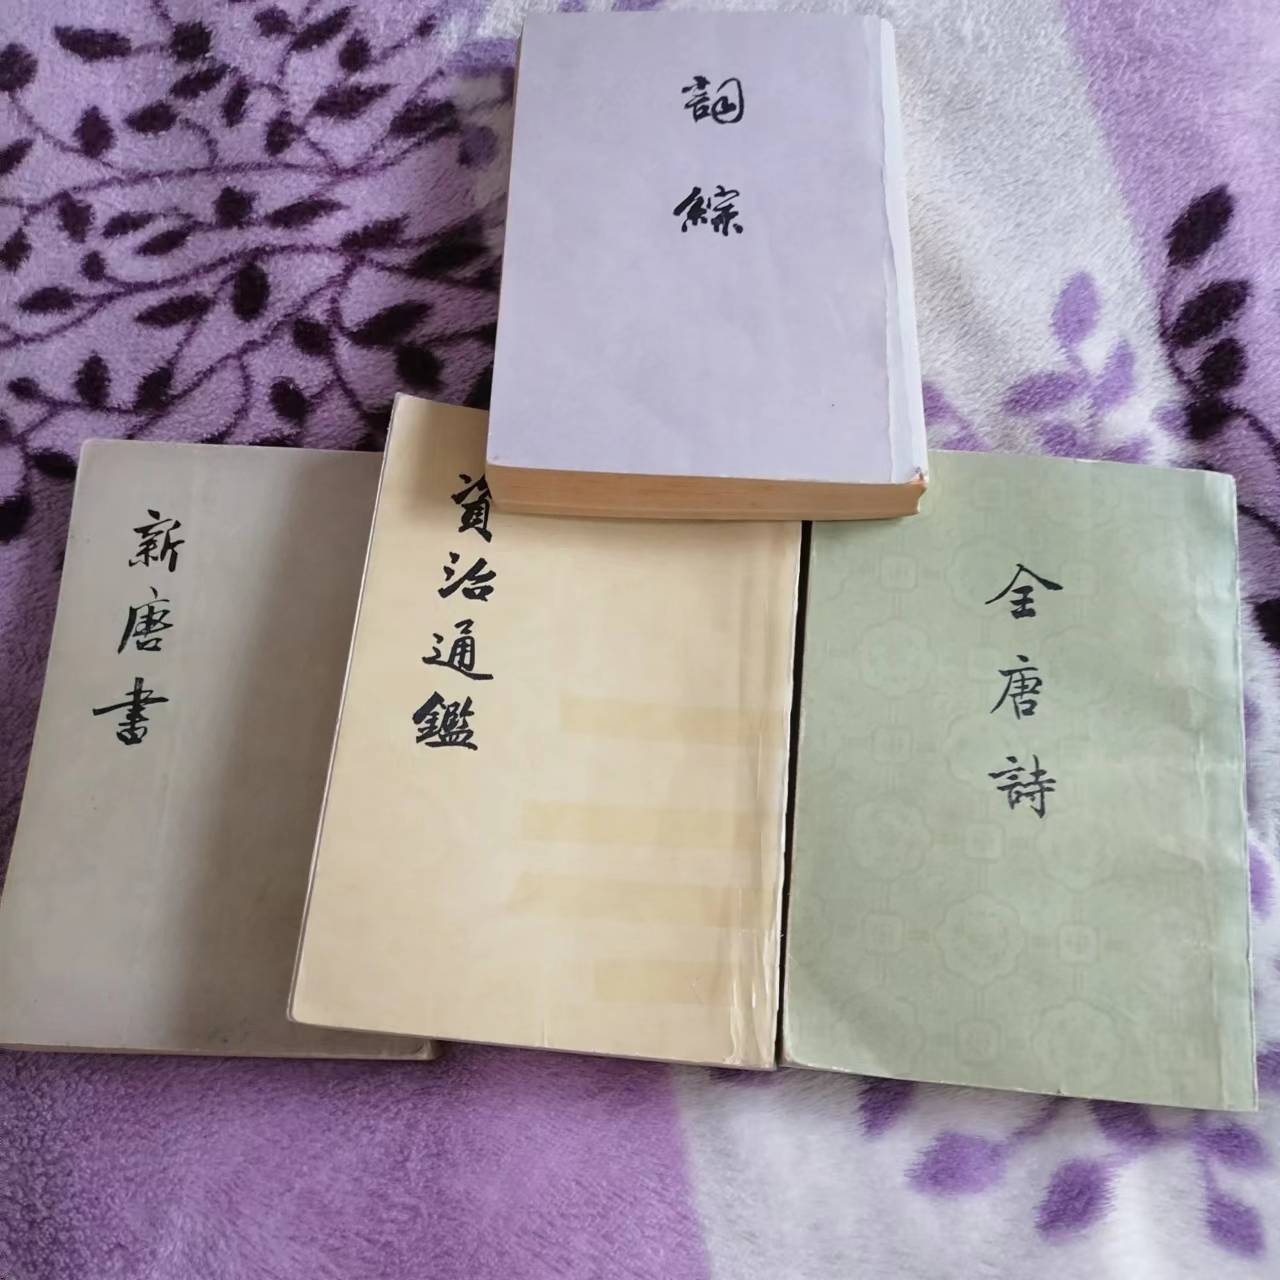 詞綜
新唐書
資治通鑑
全唐詩